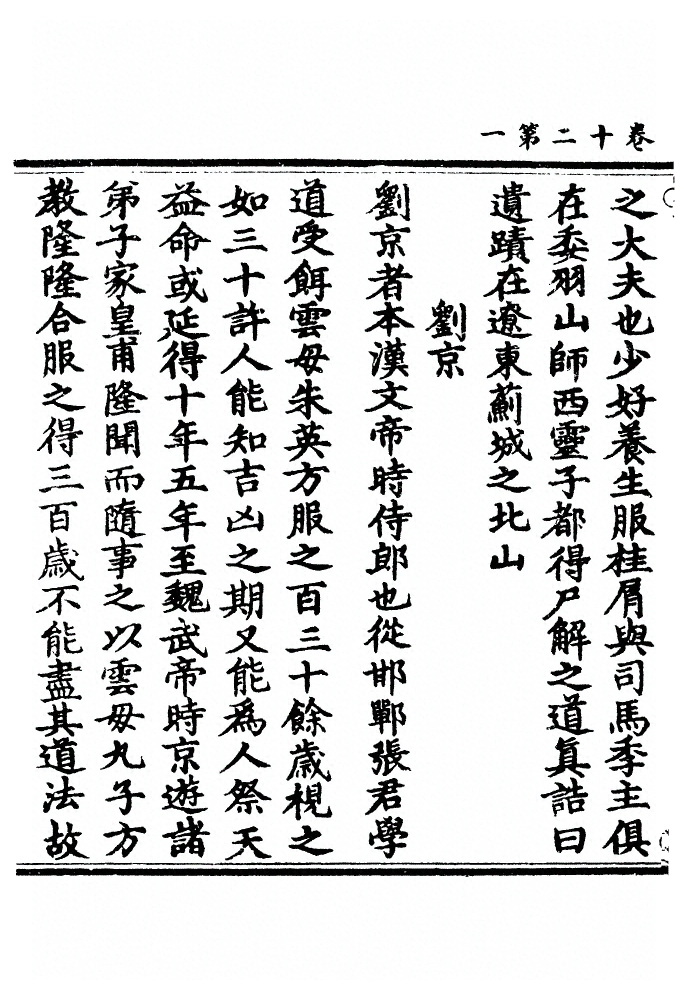 卷十二第一
之大夫也少好養生服桂屑與司馬季主俱
在委羽山師西靈子都得尸解之道真誥曰
遺蹟在遼東薊城之北山
劉京
劉京者本漢文帝時侍郎也從邯鄲張君學
道受餌雲母朱英方服之百三十餘歲視之
如三十許人能知吉凶之期又能為人祭天
益命或延得十年五年至魏武帝時京遊諸
弟子家皇甫隆聞而隨事之以雲母九子方
教隆隆合服之得三百歲不能盡其道法故